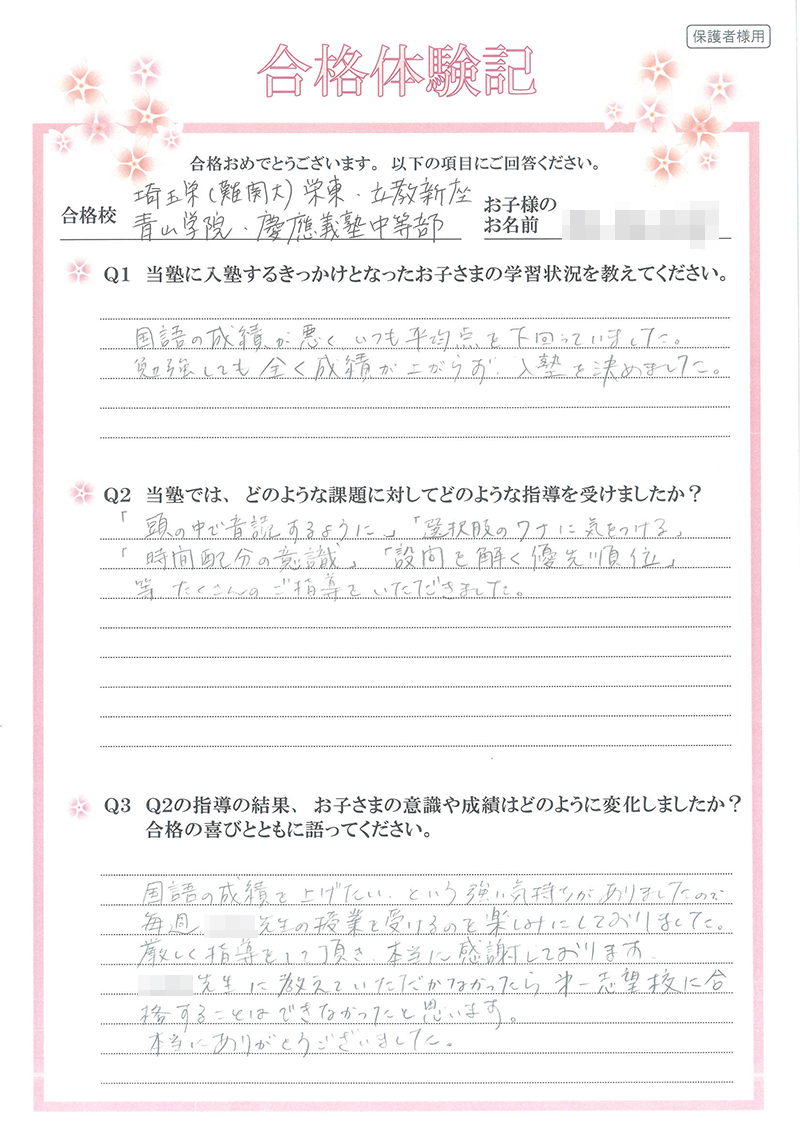 保護者様用
合格体験記
合格おめでとうございます。以下の項目にご回答ください。
合格校
埼玉栄(難関大)栄東・立教新座
青山学院・慶應義塾中等部
お子様の
お名前
Q1 当塾に入塾するきっかけとなったお子さまの学習状況を教えてください。
国語の成績が悪く、いつも平均点を下回っていました。
勉強しても全く成績が上がらず、入塾を決めました。
Q2 当塾では、どのような課題に対してどのような指導を受けましたか?
「頭の中で音読するように」「選択肢のワナに気をつける」
「時間配分の意識」「設問を解く優先順位」
等 たくさんのご指導をいただきました。
Q3 Q2の指導の結果、お子さまの意識や成績はどのように変化しましたか?
合格の喜びとともに語ってください。
国語の成績を上げたい、という強い気持ちがありましたので
毎週 先生の授業を受けるのを楽しみにしておりました。
厳しく指導をして頂き、本当に感謝しております。
先生に教えていただかなかったら第一志望校に合
格することはできなかったと思います。
本当にありがとうございました。